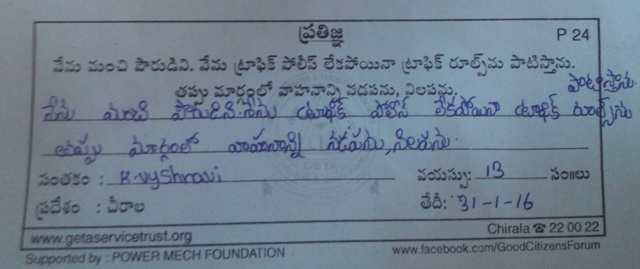 ప్రతిజ్ఞ
P 24
నేను మంచి పౌరుడిని. నేను ట్రాఫిక్ పోలీస్ లేకపోయినా ట్రాఫిక్ రూల్స్‌ను పాటిస్తాను.
తప్పు మార్గంలో వాహనాన్ని నడపను, నిలపను.
పాటిస్తాను.
నేను మంచి పౌరుడిని. నేను ట్రాఫిక్ పోలీస్ లేకపోయినా ట్రాఫిక్ రూల్స్‌ను
తప్పు మార్గంలో వాహనాన్ని నడపను, నిలపను.
సంతకం : K.vyshnavi వయస్సు: 13 సం॥లు
ప్రదేశం : చీరాల తేదీ: 31-1-16
www.getaservicetrust.org Chirala ☎ 22 00 22
Supported by : POWER MECH FOUNDATION www.facebook.com/GoodCitizensForum